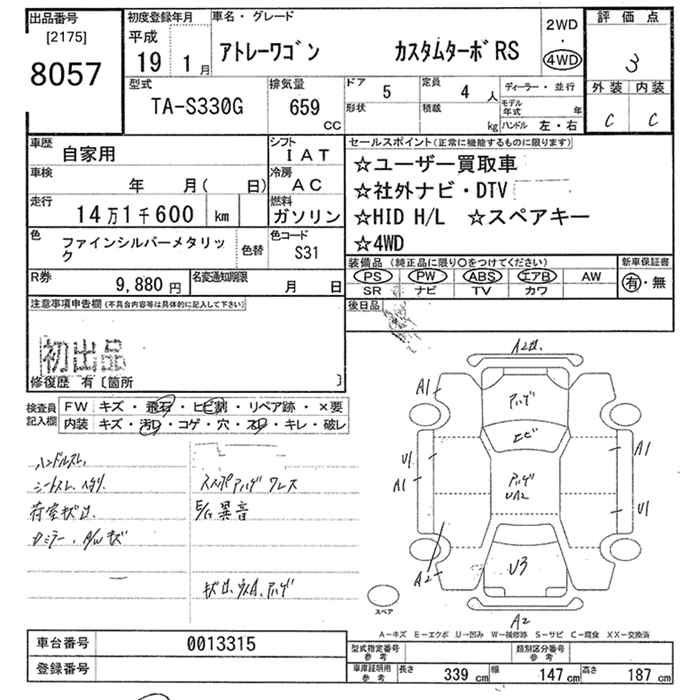 出品番号
[2175]
8057
初度登録年月
平成
19 1 月
車名・グレード
アトレーワゴン カスタムターボRS
2WD
・
4WD
評価点
3
外装 内装
C C
型式
TA-S330G
排気量
659
CC
ドア
5
定員
4 人
形状
積載
kg
ディーラー・並行
モデル年式 年
ハンドル 左・右
車歴
自家用
シフト
IAT
車検
年 月( 日)
冷房
AC
走行
14万1千600 km
燃料
ガソリン
色
ファインシルバーメタリック
色替
色コード
S31
R券
9,880 円
名変通知期限
月 日
セールスポイント(正常に機能するものに限ります)
☆ユーザー買取車
☆社外ナビ・DTV
☆HID H/L ☆スペアキー
☆4WD
装備品 (純正品に限り○をつけてください)
PS PW ABS エアB AW
SR ナビ TV カワ
新車保証書
有・無
後日品
注意事項申告欄(不具合内容等は具体的に記入して下さい)
初出品
修復歴 有〔箇所 〕
検査員記入欄
FW キズ・飛石・ヒビ割・リペア跡・×要
内装 キズ・汚れ・コゲ・穴・スレ・キレ・破レ
ハンドルスレ
荷室キズ凹
E/G異音
A2
A1
アゲ
A1
U1
A1
U1
A2
U3
A2
スペア
A-キズ E-エクボ U-凹み W-補修跡 S-サビ C-腐食 XX-交換済
車台番号
0013315
登録番号
型式指定番号
参考
類別区分番号
参考
車庫証明用
参考
長さ 339 cm 幅 147 cm 高さ 187 cm